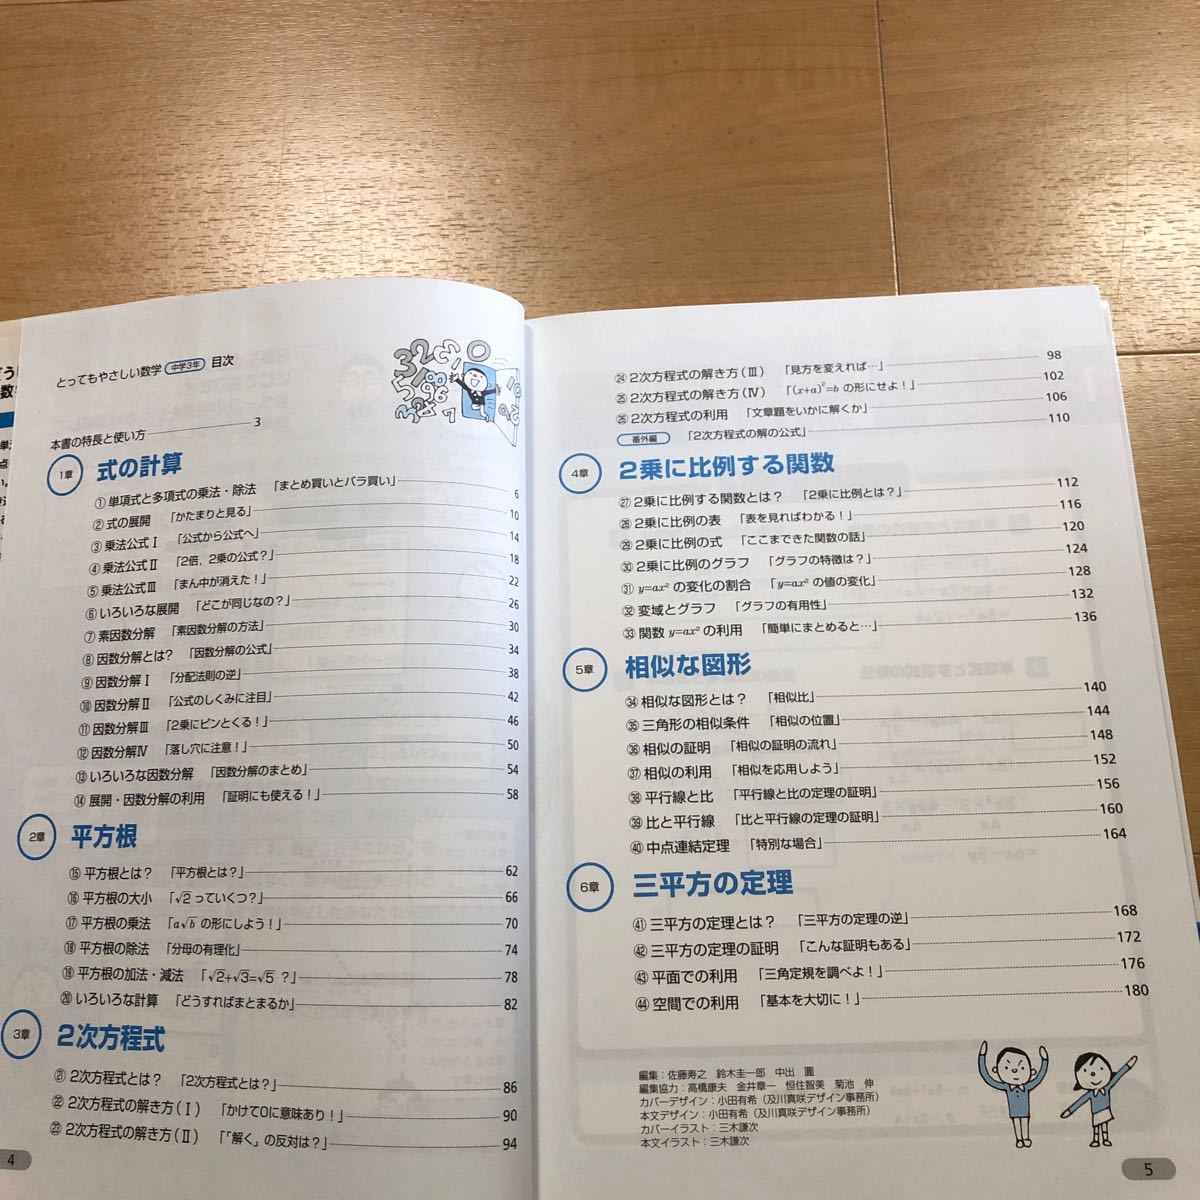 とってもやさしい数学 中学3年 目次
本書の特長と使い方 3
1章 式の計算
① 単項式と多項式の乗法・除法 「まとめ買いとバラ買い」 6
② 式の展開 「かたまりと見る」 10
③ 乗法公式Ⅰ 「公式から公式へ」 14
④ 乗法公式Ⅱ 「2倍、2乗の公式?」 18
⑤ 乗法公式Ⅲ 「まん中が消えた!」 22
⑥ いろいろな展開 「どこが同じなの?」 26
⑦ 素因数分解 「素因数分解の方法」 30
⑧ 因数分解とは? 「因数分解の公式」 34
⑨ 因数分解Ⅰ 「分配法則の逆」 38
⑩ 因数分解Ⅱ 「公式のしくみに注目」 42
⑪ 因数分解Ⅲ 「2乗にピンとくる!」 46
⑫ 因数分解Ⅳ 「落し穴に注意!」 50
⑬ いろいろな因数分解 「因数分解のまとめ」 54
⑭ 展開・因数分解の利用 「証明にも使える!」 58
2章 平方根
⑮ 平方根とは? 「平方根とは?」 62
⑯ 平方根の大小 「√2っていくつ?」 66
⑰ 平方根の乗法 「a√bの形にしよう!」 70
⑱ 平方根の除法 「分母の有理化」 74
⑲ 平方根の加法・減法 「√2+√3=√5 ?」 78
⑳ いろいろな計算 「どうすればまとまるか」 82
3章 2次方程式
㉑ 2次方程式とは? 「2次方程式とは?」 86
㉒ 2次方程式の解き方(Ⅰ) 「かけて0に意味あり!」 90
㉓ 2次方程式の解き方(Ⅱ) 「「解く」の反対は?」 94
4
㉔ 2次方程式の解き方(Ⅲ) 「見方を変えれば…」 98
㉕ 2次方程式の解き方(Ⅳ) 「(x+a)²=bの形にせよ!」 102
㉖ 2次方程式の利用 「文章題をいかに解くか」 106
番外編 「2次方程式の解の公式」 110
4章 2乗に比例する関数
㉗ 2乗に比例する関数とは? 「2乗に比例とは?」 112
㉘ 2乗に比例の表 「表を見ればわかる!」 116
㉙ 2乗に比例の式 「ここまできた関数の話」 120
㉚ 2乗に比例のグラフ 「グラフの特徴は?」 124
㉛ y=ax²の変化の割合 「y=ax²の値の変化」 128
㉜ 変域とグラフ 「グラフの有用性」 132
㉝ 関数y=ax²の利用 「簡単にまとめると…」 136
5章 相似な図形
㉞ 相似な図形とは? 「相似比」 140
㉟ 三角形の相似条件 「相似の位置」 144
㊱ 相似の証明 「相似の証明の流れ」 148
㊲ 相似の利用 「相似を応用しよう」 152
㊳ 平行線と比 「平行線と比の定理の証明」 156
㊴ 比と平行線 「比と平行線の定理の証明」 160
㊵ 中点連結定理 「特別な場合」 164
6章 三平方の定理
㊶ 三平方の定理とは? 「三平方の定理の逆」 168
㊷ 三平方の定理の証明 「こんな証明もある」 172
㊸ 平面での利用 「三角定規を調べよ!」 176
㊹ 空間での利用 「基本を大切に!」 180
編集:佐藤寿之 鈴木圭一郎 中出 圃
編集協力:高橋康夫 金井章一 恒住智美 菊池 伸
カバーデザイン:小田有希(及川真咲デザイン事務所)
本文デザイン:小田有希(及川真咲デザイン事務所)
カバーイラスト:三木謙次
本文イラスト:三木謙次
5